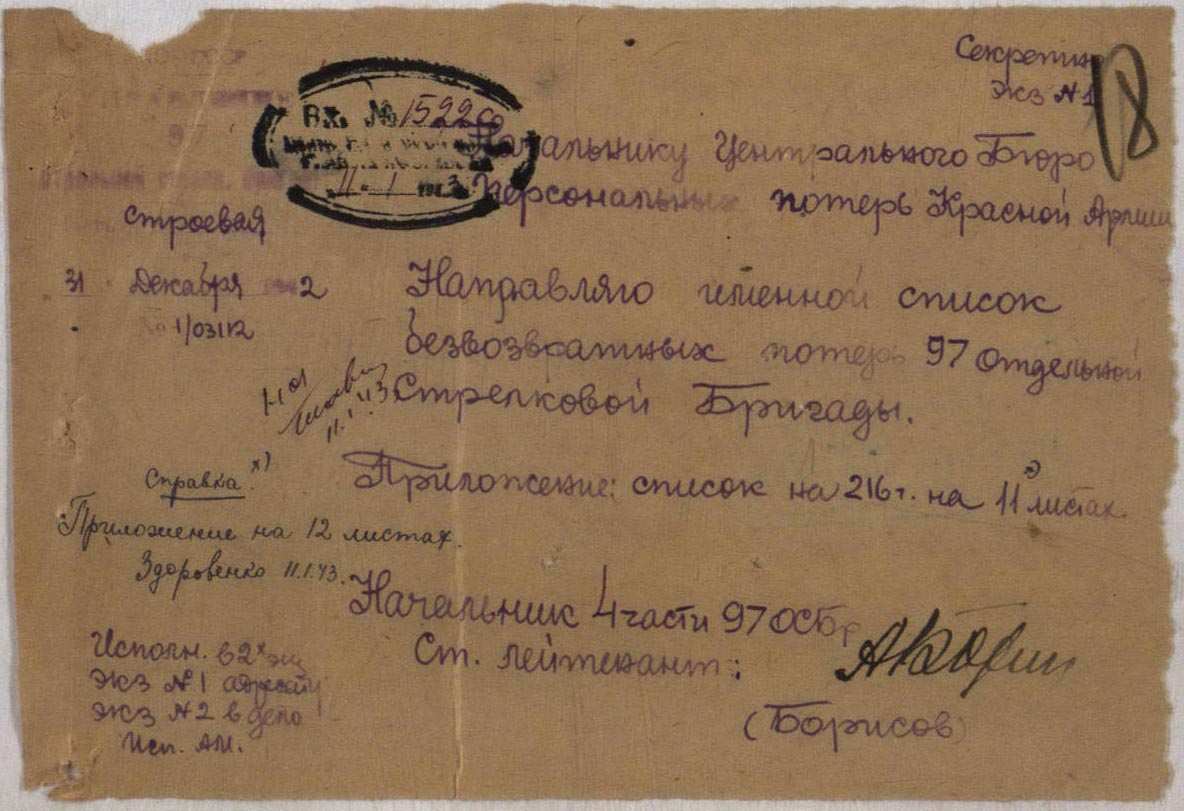 Секретно
Экз № 1
18
Вх. № 1522с
11 - 1 1943
Начальнику Центрального Бюро
персональных потерь Красной Армии
Строевая
31 Декабря 2
№ 1/03112
Направляю именной список
безвозвратных потерь 97 отдельной
Стрелковой Бригады.
11.1.43
Приложение: список на 216 г. на 11 х) листах
Справка х)
Приложение на 12 листах.
Здоровенко 11.1.43.
Начальник 4 части 97 ОСБр
Ст. лейтенант:
(Борисов)
Исполн. в 2х экз
Экз № 1 адресату
Экз № 2 в дело
Исп. АМ.